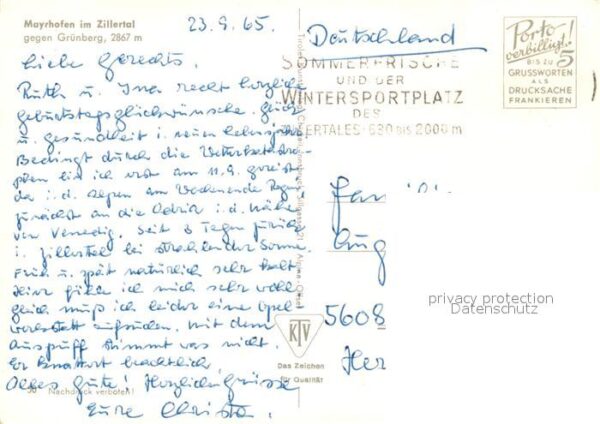 Mayrhofen im Zillertal
gegen Grünberg, 2867 m
23.9.65.
Liebe Gerechts.
Ruth u. Ina recht herzliche
Geburtstagsglückwünsche. Glück
u. Gesundheit i. neuen Lebensjahr.
Bedingt durch die
bin ich erst am 11.9. gereist
da i. d. Alpen am Wochenende Regen,
zunächst an die Adria i. d. Nähe
von Venedig. Seit 6 Tagen zurück
i. Zillertal bei strahlender Sonne.
Früh u. spät natürlich sehr kalt.
Hier fühle ich mich sehr wohl
gleich muß ich leider eine Opel
werkstatt aufsuchen. Mit dem
Auspuff stimmt was nicht.
Er knattert beachtlich.
Alles Gute! Herzliche Grüsse
Eure Christa.
Nachdruck verboten!
Deutschland
SOMMERFRISCHE
UND DER
WINTERSPORTPLATZ
DES
ERTALES · 630 bis 2000 m
Porto
verbilligt!
BIS ZU 5
GRUSSWORTEN
ALS
DRUCKSACHE
FRANKIEREN
Fam
5608
privacy protection
Datenschutz
KTV
Das Zeichen
für Qualität